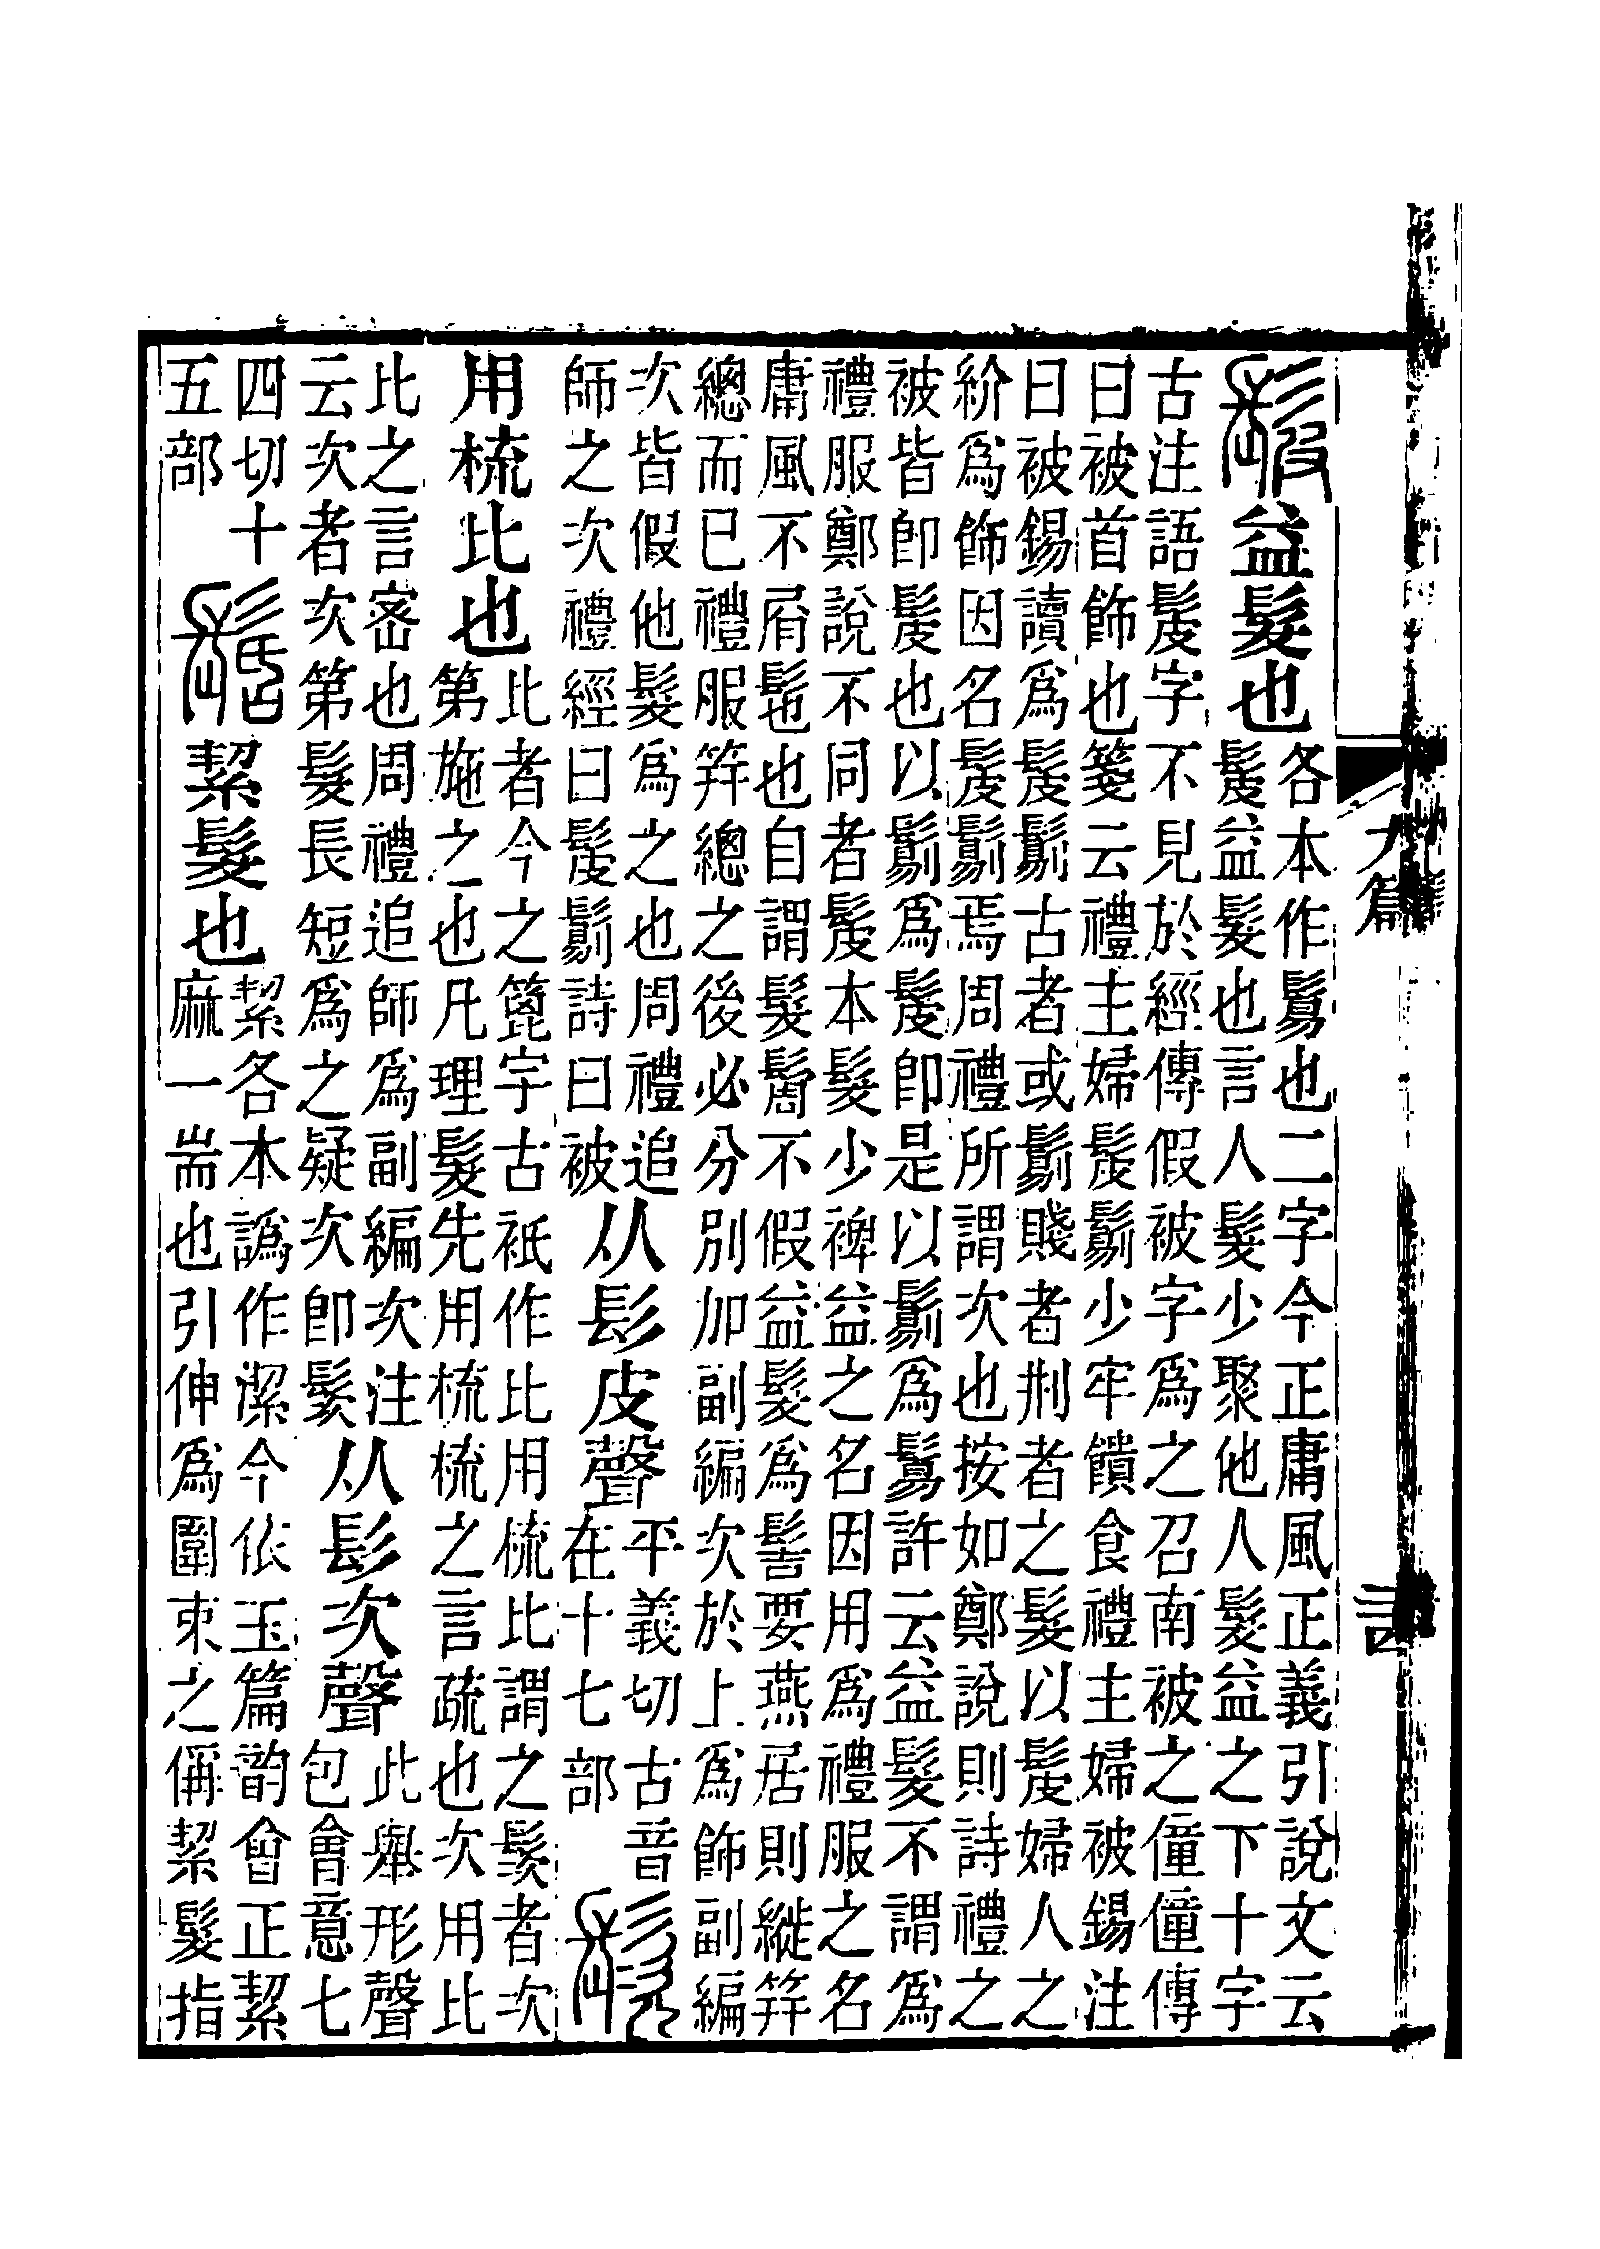 髲益髮也各本作鬄也二字今正庸風正義引說文云
髲益髮也言人髮少聚他人髮益之下十字
古注語髲字不見於經傳假被字爲之召南被之僮僮傳
曰被首飾也箋云禮主婦髲鬄少牢饋食禮主婦被錫注
曰被錫讀爲髲鬄古者或鬄賤者刑者之髮以髲婦人之
紒爲飾因名髲鬄焉周禮所謂次也按如鄭說則詩禮之
被皆卽髲也以鬄爲髲卽是以鬄爲鬄許云益髮不謂爲
禮服鄭說不同者髲本髮少裨益之名因用爲禮服之名
庸風不屑髢也自謂髮鬒不假益髮爲髻要燕居則縰笄
總而已禮服笄總之後必分別加副編次於上爲飾副編
次皆假他髮爲之也周禮追
師之次禮經曰髲鬄詩曰被从髟皮聲平義切古音
在十七部䯸
用梳比也比者今之篦字古衹作比用梳比謂之䯸者次
第施之也凡理髮先用梳梳之言疏也次用比
比之言密也周禮追師爲副編次注
云次者次第髮長短爲之疑次卽䯸从髟次聲此舉形聲
包會意七
四切十
五部髺絜髮也絜各本譌作潔今依玉篇韵會正絜
麻一耑也引伸爲圍束之偁絜髮指